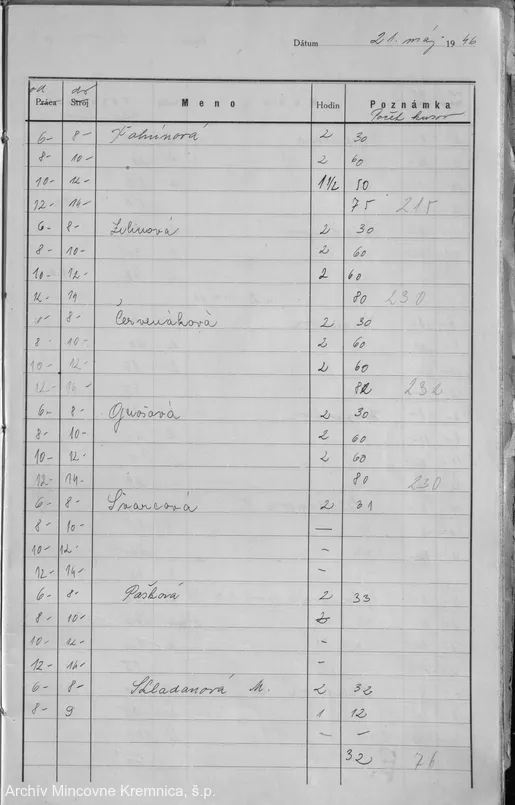 Dátum 21. máj 1946
od do
Práca Stroj Meno Hodin Poznámka
Počet kusov
6- 8- 2 30
8- 10- 2 60
10- 12- 1 1/2 50
12- 14- 75 215
6- 8- 2 30
8- 10- 2 60
10- 12- 2 60
12 14 80 230
8- Červenáková 2 30
8- 10- 2 60
10- 12- 2 60
12- 14- 82 232
6- 8- 2 30
8- 10- 2 60
10- 12- 2 60
12- 14- 80 230
6- 8- Švarcová 2 31
8- 10- —
10- 12- -
12- 14- -
6- 8- Pašková 2 33
8- 10-
10- 12- -
12- 14- -
6- 8- Skladanová M. 2 32
8- 9 1 12
— —
32 76
Archív Mincovne Kremnica, š.p.